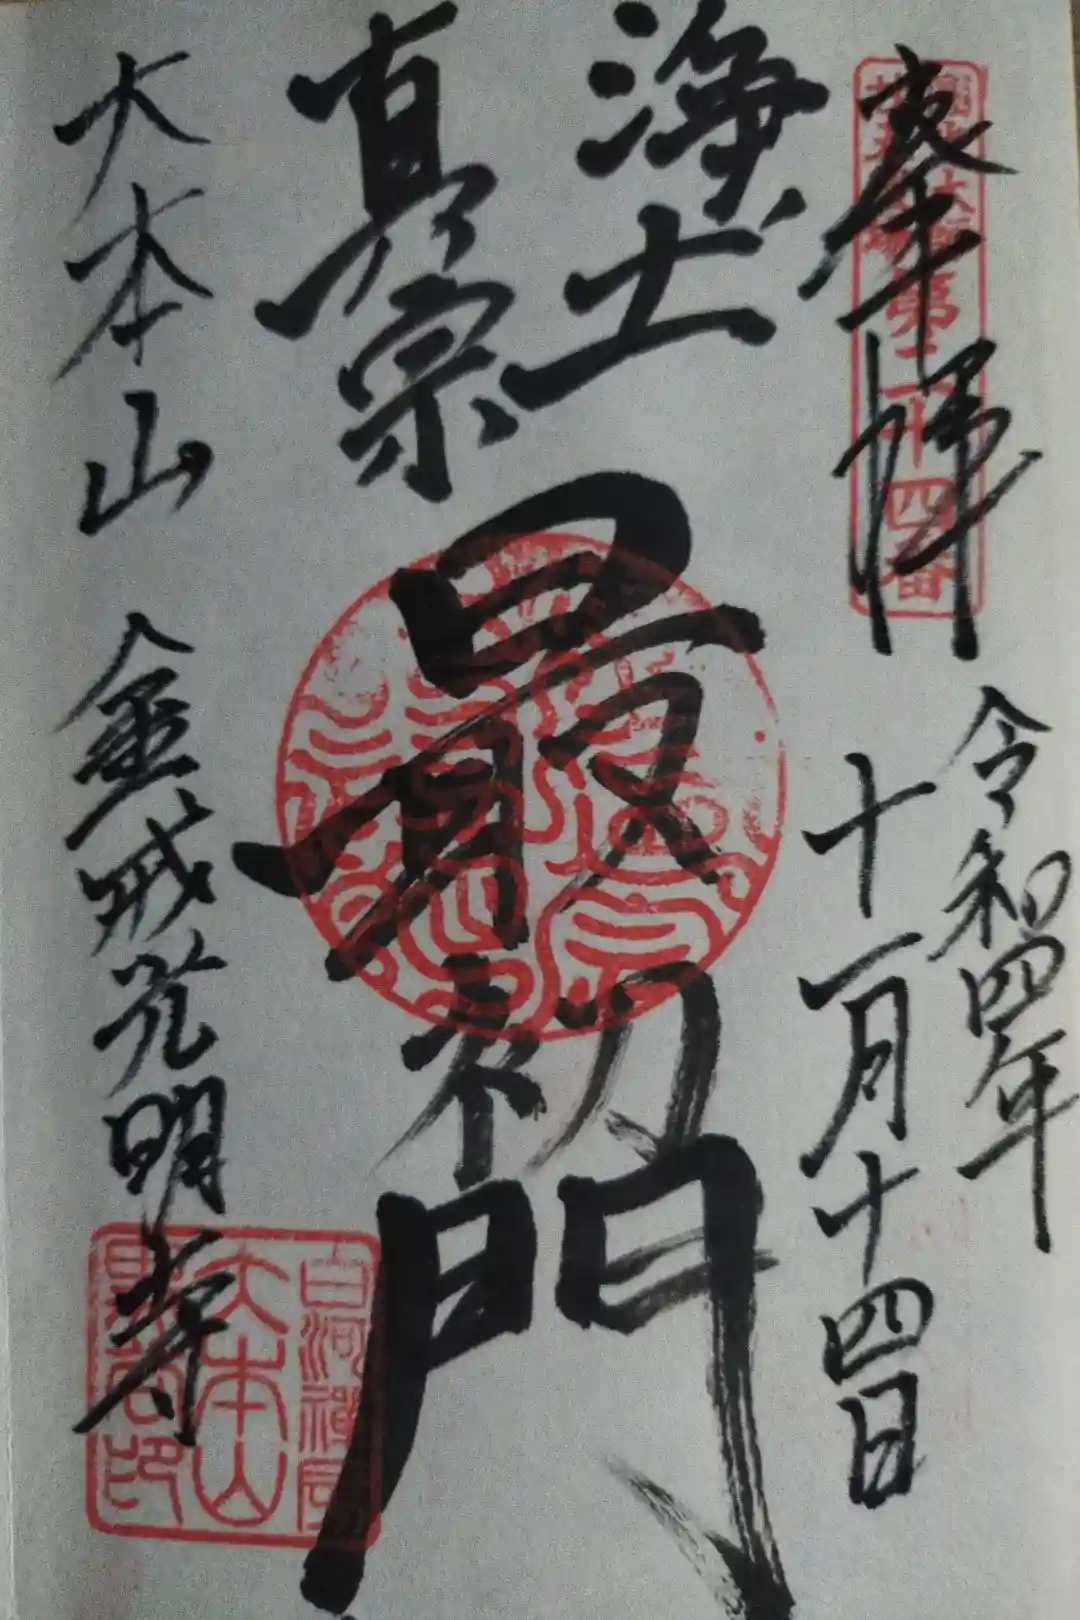 奉拝
第二十四番
令和四年
十一月十四日
浄土
真宗
最初門
大本山 金戒光明寺
大本山